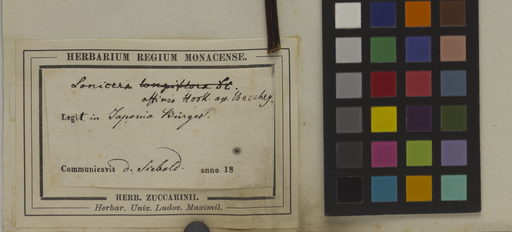 HERBARIUM REGIUM MONACENSE.
Lonicera longiflora DC.
affinis Hook. ap. Beechey.
Legit in Japonia Bürger.
Communicavit v. Siebold. anno 18
HERB. ZUCCARINII.
Herbar. Univ. Ludov. Maximil.